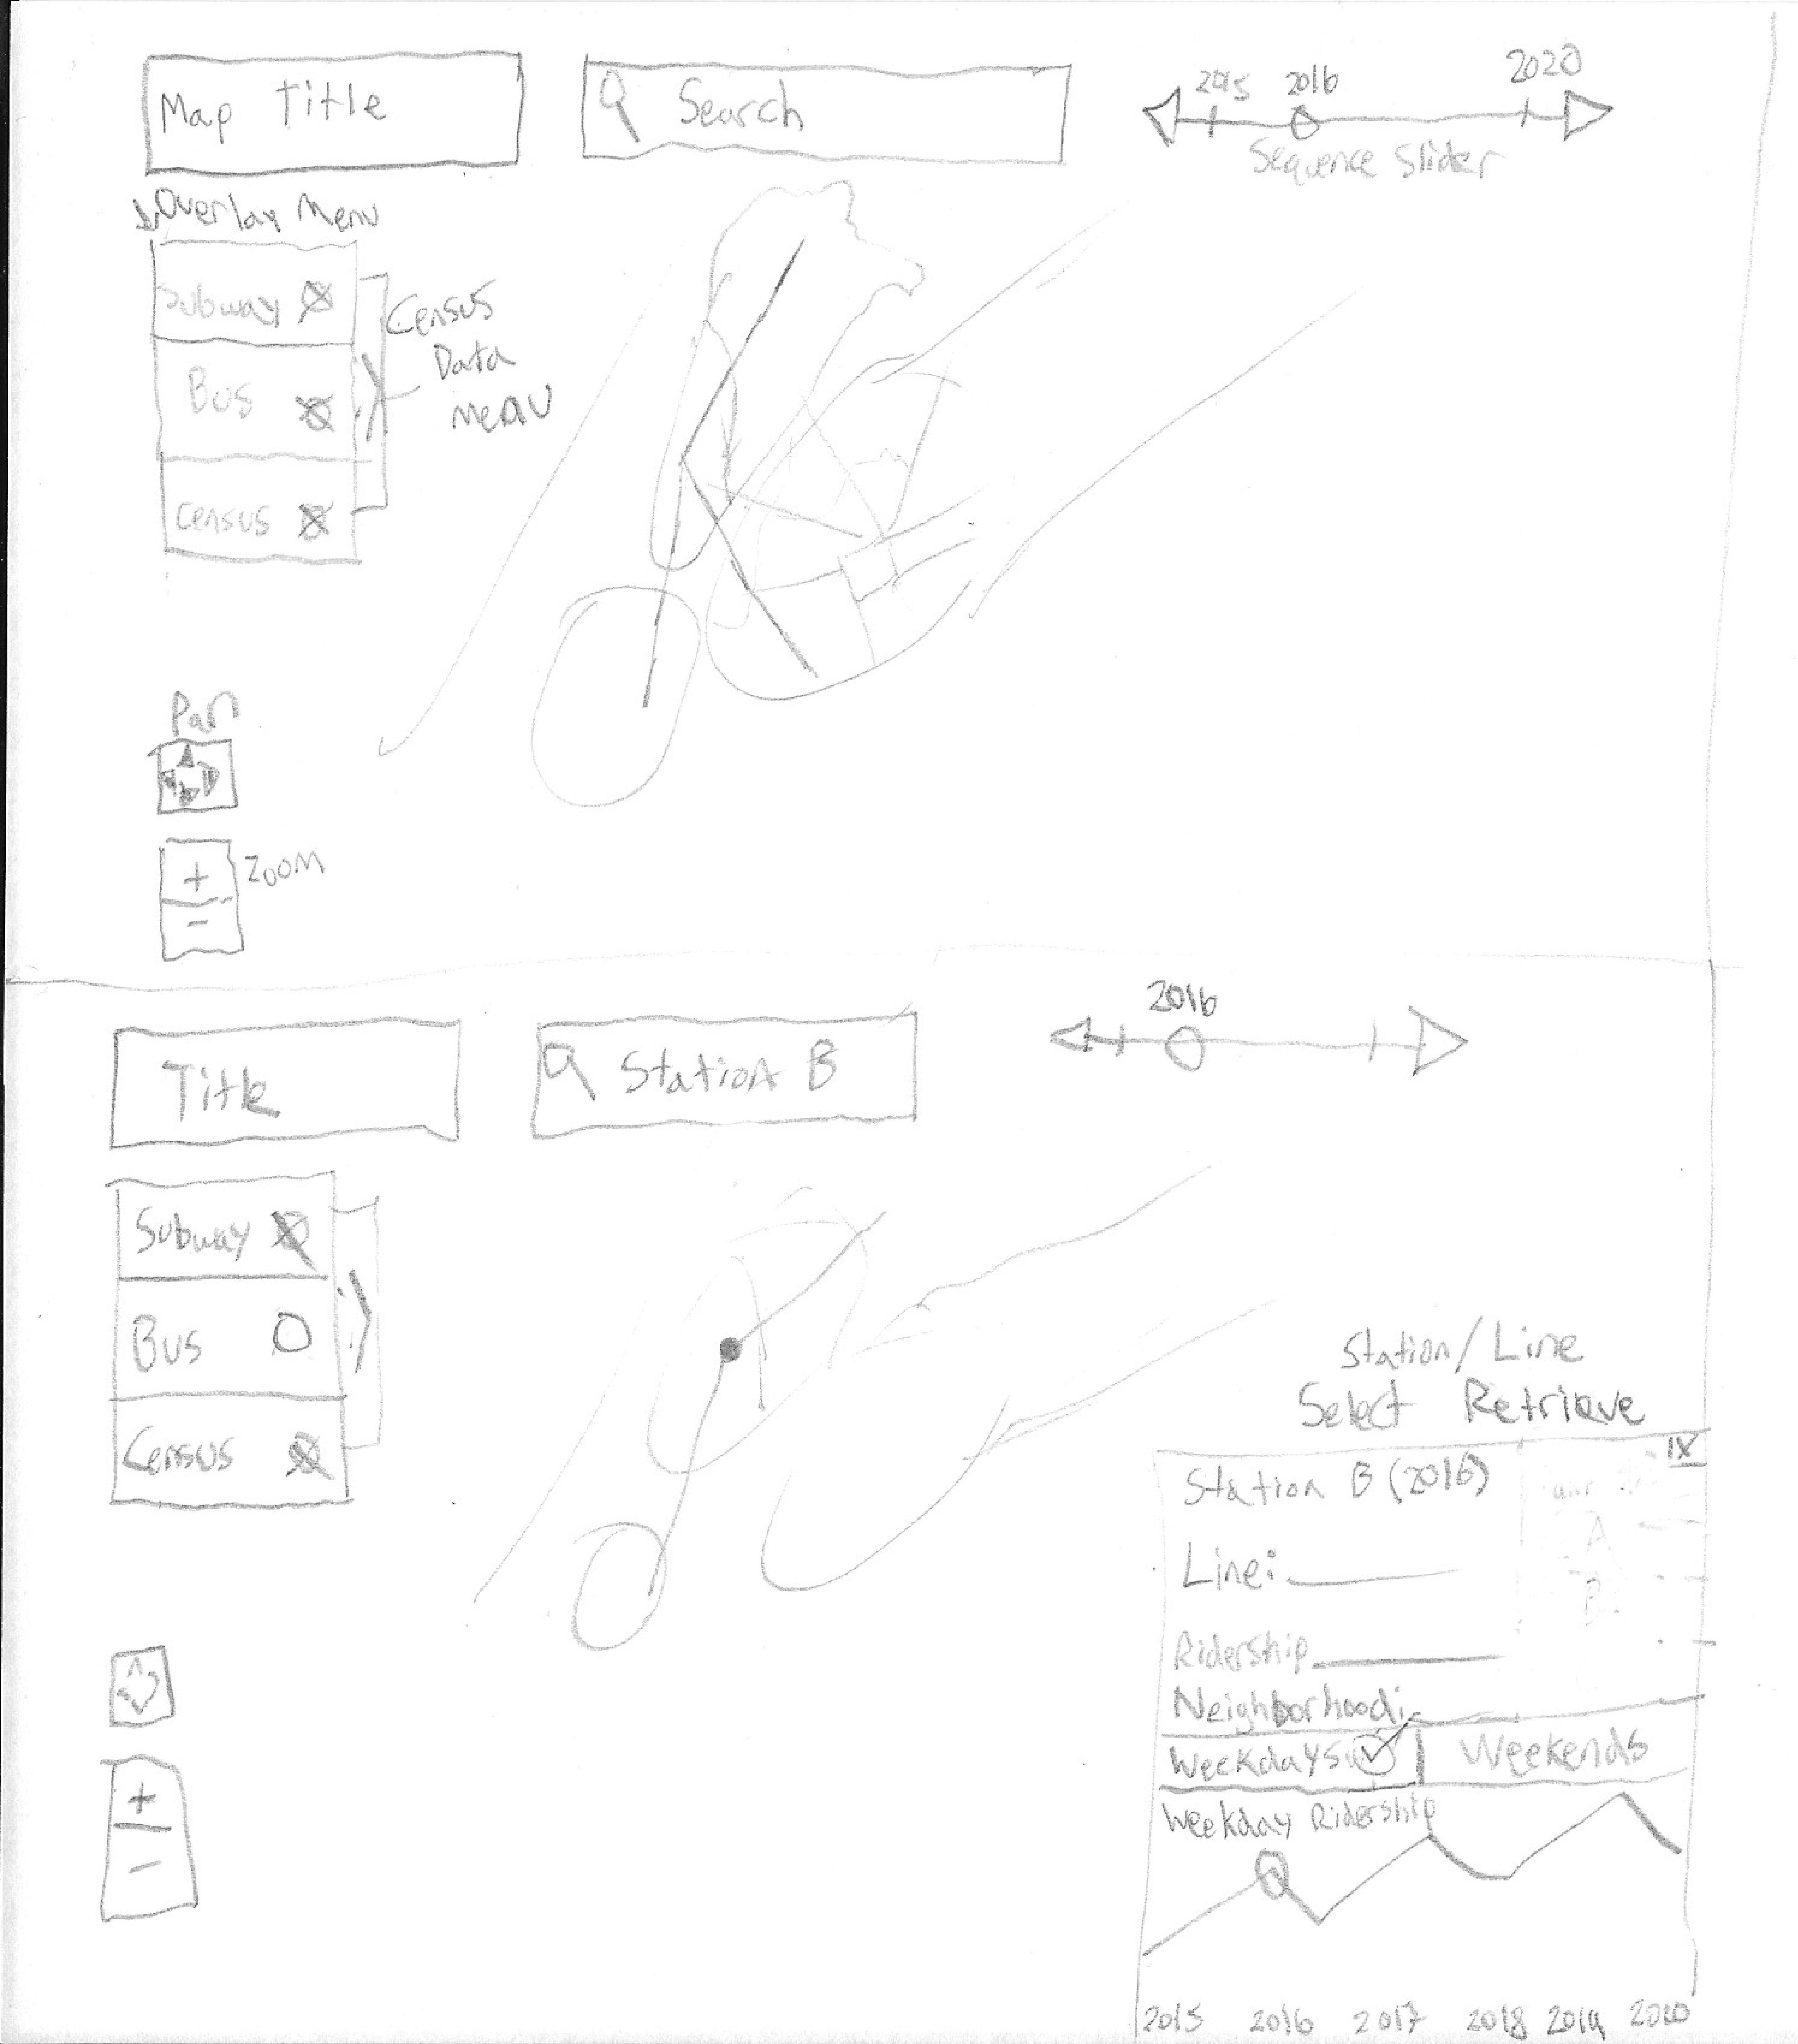 Map Title
Search
2015 2016 2020
Sequence Slider
Overlay Menu
Subway
Census
Data
Menu
Bus
Census
Pan
+ Zoom
-
2016
Title
Station B
Subway
Bus
Census
Station/Line
Select Retrieve
X
Station B (2016)
A
Line:
B
Ridership
Neighborhood:
Weekdays Weekends
Weekday Ridership
+
-
2015 2016 2017 2018 2019 2020